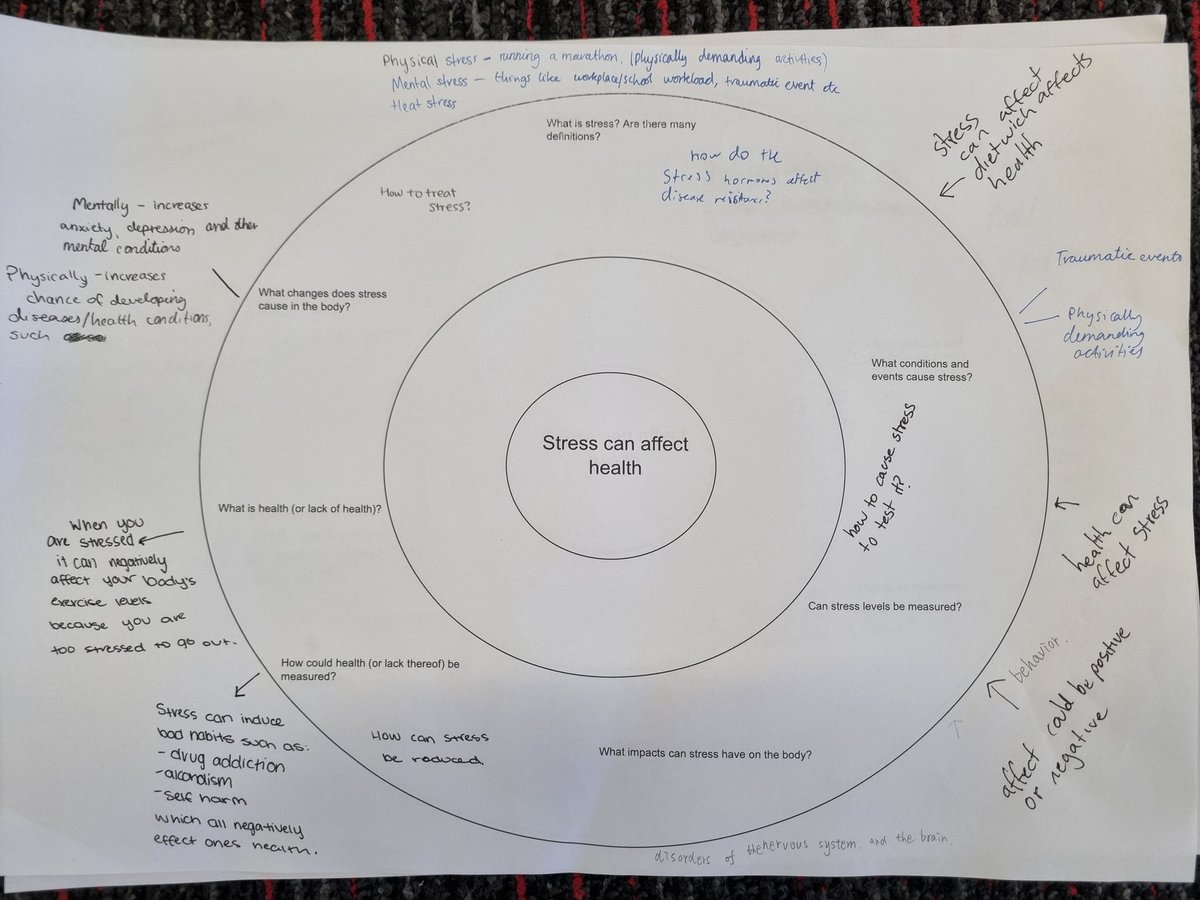 Physical stress – running a marathon, (physically demanding activities)
Mental stress – things like workplace/school workload, traumatic event etc
Heat stress
What is stress? Are there many
definitions?
how do the
Stress hormons affect
disease resistance?
How to treat
Stress?
stress
can affect
diet wich affects
health
Mentally – increases
anxiety, depression and other
mental conditions
Physically – increases
chance of developing
diseases/health conditions,
such
What changes does stress
cause in the body?
Traumatic events
Physically
demanding
activities
What conditions and
events cause stress?
how to cause stress
to test it?
Stress can affect
health
What is health (or lack of health)?
When you
are stressed
it can negatively
affect your body's
exercise levels
because you are
too stressed to go out.
health can
affect stress
Can stress levels be measured?
behavior.
affect could be positive
or negative
How could health (or lack thereof) be
measured?
Stress can induce
bad habits such as:
- drug addiction
- alcoholism
- self harm
which all negatively
effect ones health.
How can stress
be reduced
What impacts can stress have on the body?
disorders of the nervous system. and the brain.